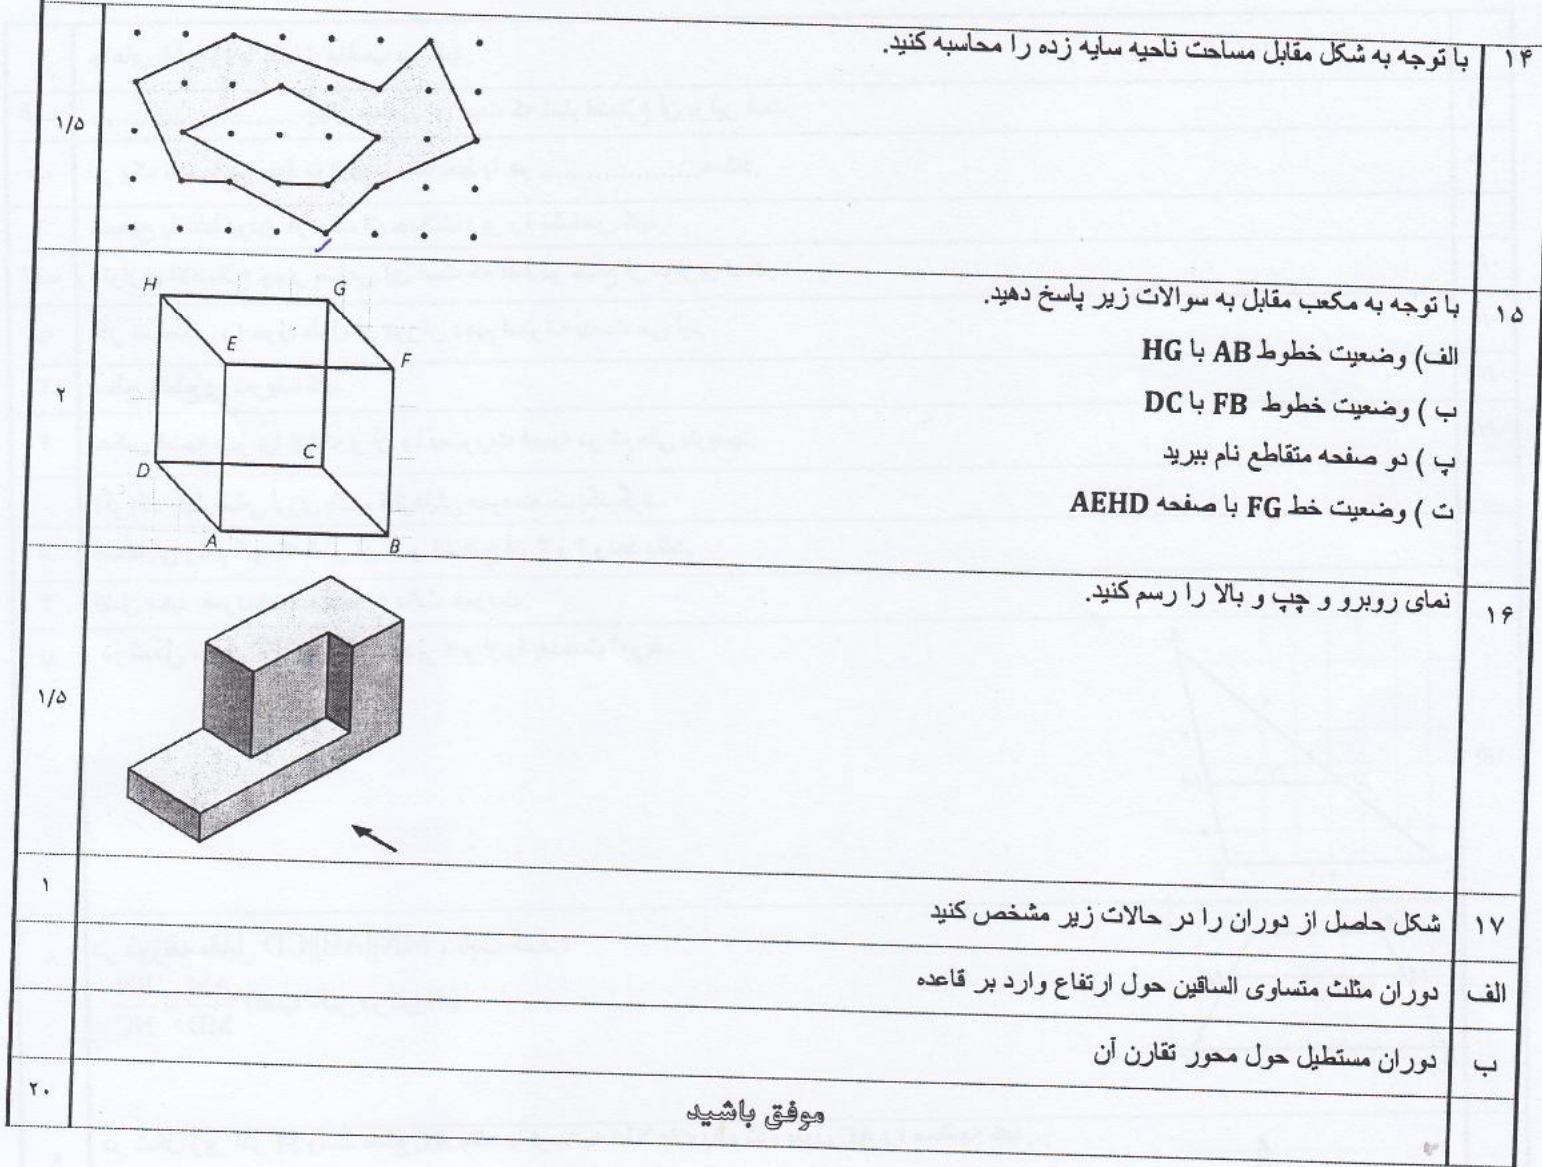 ۱۴ با توجه به شکل مقابل مساحت ناحیه سایه زده را محاسبه کنید.
۱/۵
۱۵ با توجه به مکعب مقابل به سوالات زیر پاسخ دهید.
الف) وضعیت خطوط AB با HG
ب ) وضعیت خطوط FB با DC
پ ) دو صفحه متقاطع نام ببرید
ت ) وضعیت خط FG با صفحه AEHD
۲
H G
E F
D C
A B
۱۶ نمای روبرو و چپ و بالا را رسم کنید.
۱/۵
۱۷ شکل حاصل از دوران را در حالات زیر مشخص کنید
۱
الف دوران مثلث متساوی الساقین حول ارتفاع وارد بر قاعده
ب دوران مستطیل حول محور تقارن آن
موفق باشید
۲۰